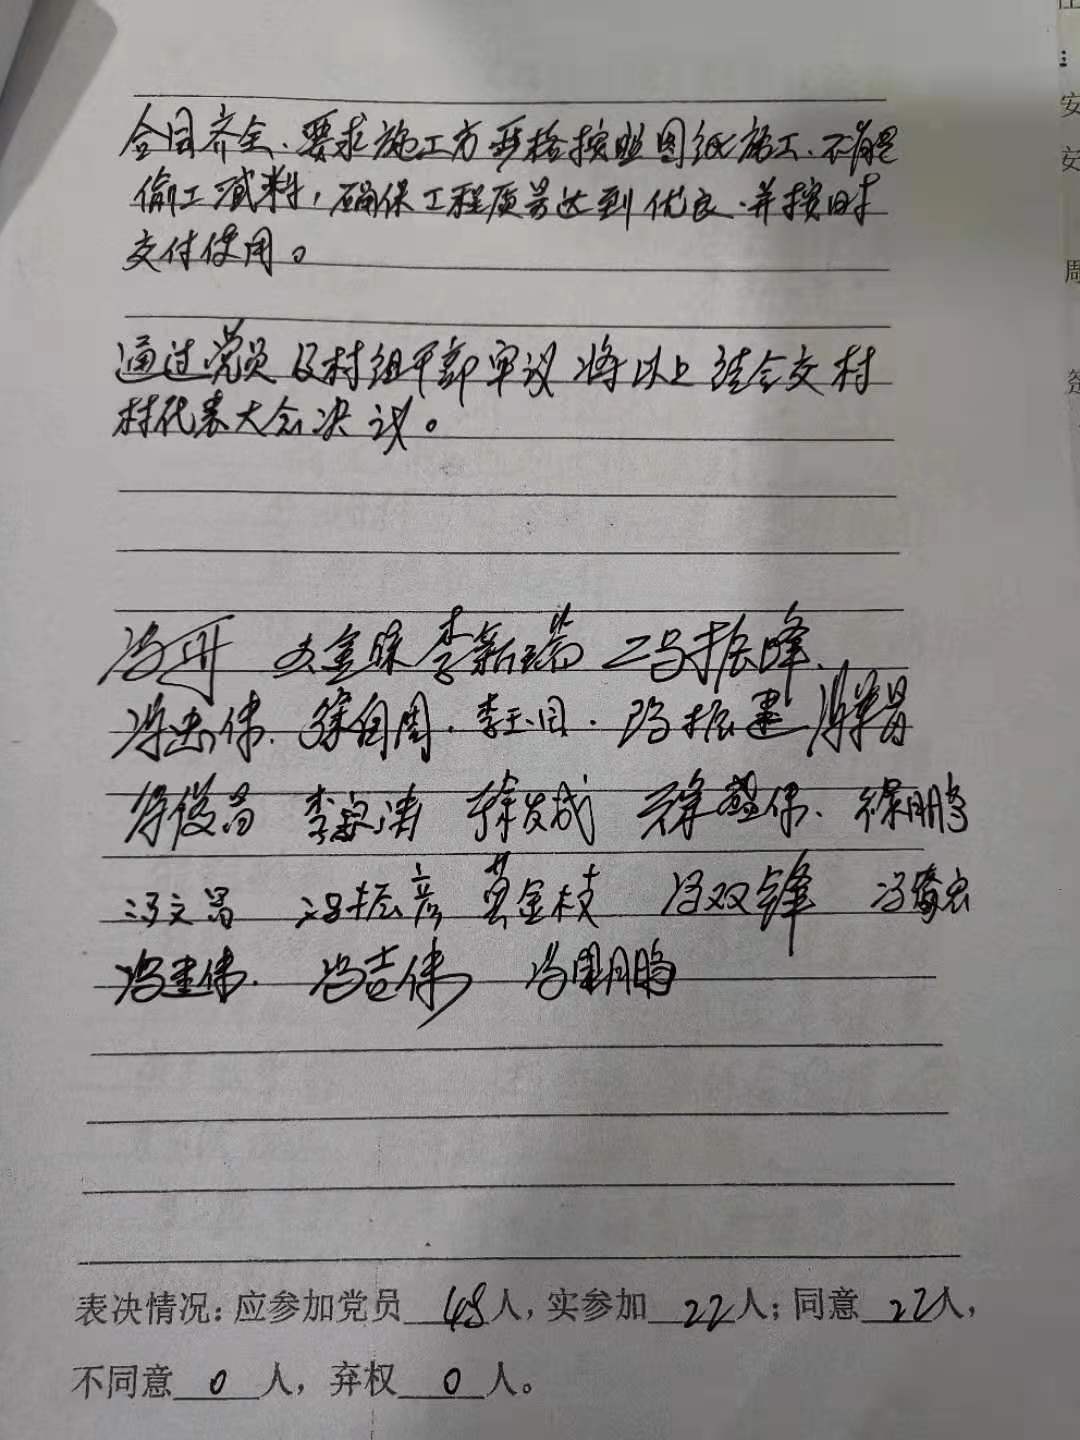 合同齐全、要求施工方严格按照图纸施工、不能
偷工减料，确保工程质量达到优良、并按时
交付使用。
通过党员及村组干部审议将以上结会交村
村代表大会决议。
冯可 李新瑞 冯振峰
徐自周 李玉国 冯振建
徐俊昌 李泉涛 徐发成 徐鹏
冯文昌 冯振彦 黄金枝 冯双锋
冯建伟 冯吉伟 冯周鹏
表决情况：应参加党员48人，实参加22人；同意22人，
不同意0人，弃权0人。
安
安
周